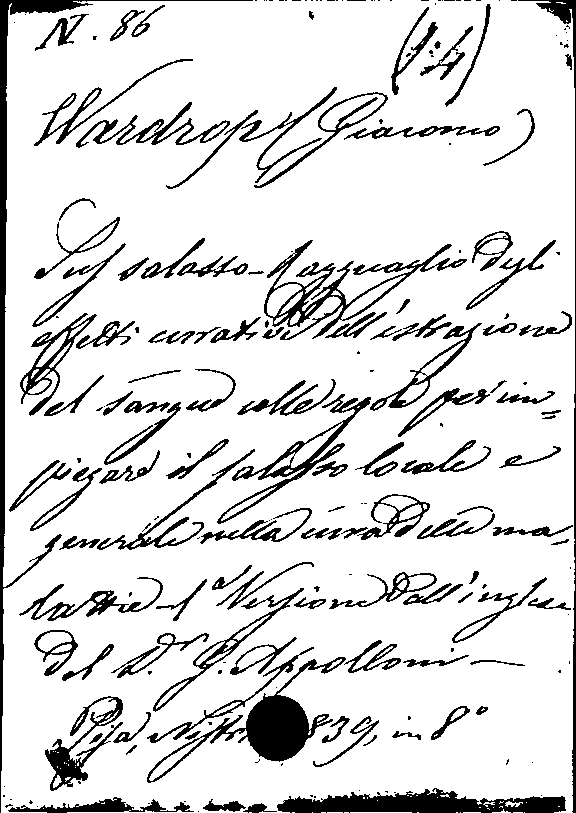 N. 86
(1:4)
Wardrop (Giacomo)
Sul salasso - Ragguaglio degli
effetti curativi dell'estrazione
del sangue colle regole per im=
piegare il salasso locale e
generale nella cura delle ma-
lattie - 1a Versione dall'inglese
del D.r G. Appolloni -
Pisa, Nistri 1839, in 8°